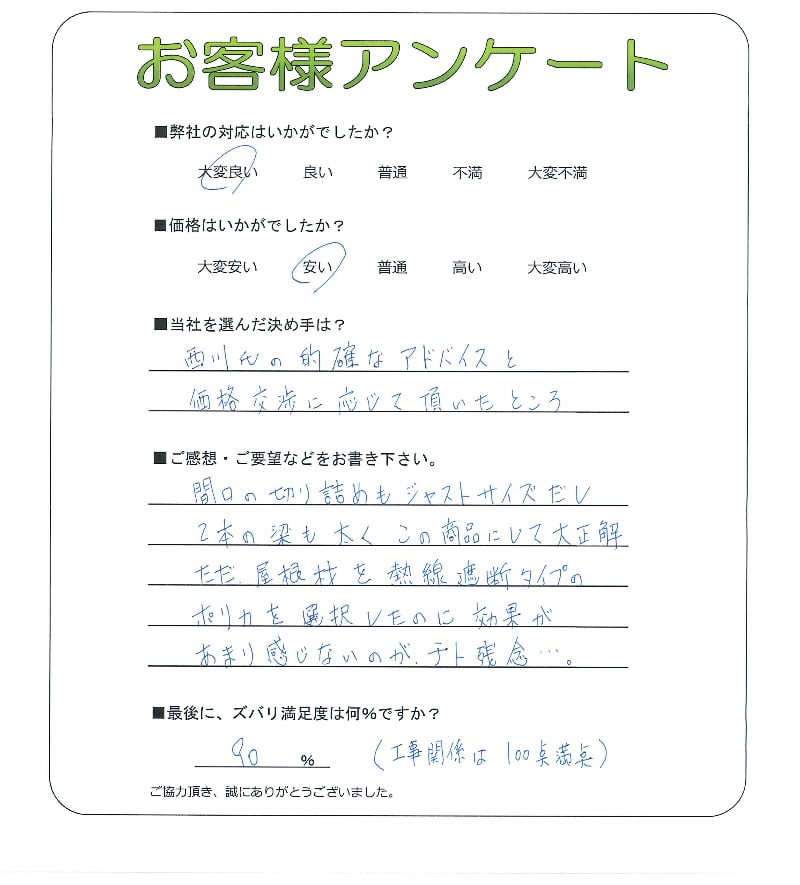 お客様アンケート
■弊社の対応はいかがでしたか？
大変良い 良い 普通 不満 大変不満
■価格はいかがでしたか？
大変安い 安い 普通 高い 大変高い
■当社を選んだ決め手は？
西川氏の的確なアドバイスと
価格交渉に応じて頂いたところ
■ご感想・ご要望などをお書き下さい。
間口の切り詰めもジャストサイズだし
2本の梁も太くこの商品にして大正解
ただ、屋根材を熱線遮断タイプの
ポリカを選択したのに効果が
あまり感じないのが、チト残念…。
■最後に、ズバリ満足度は何%ですか？
90 % (工事関係は100点満点)
ご協力頂き、誠にありがとうございました。